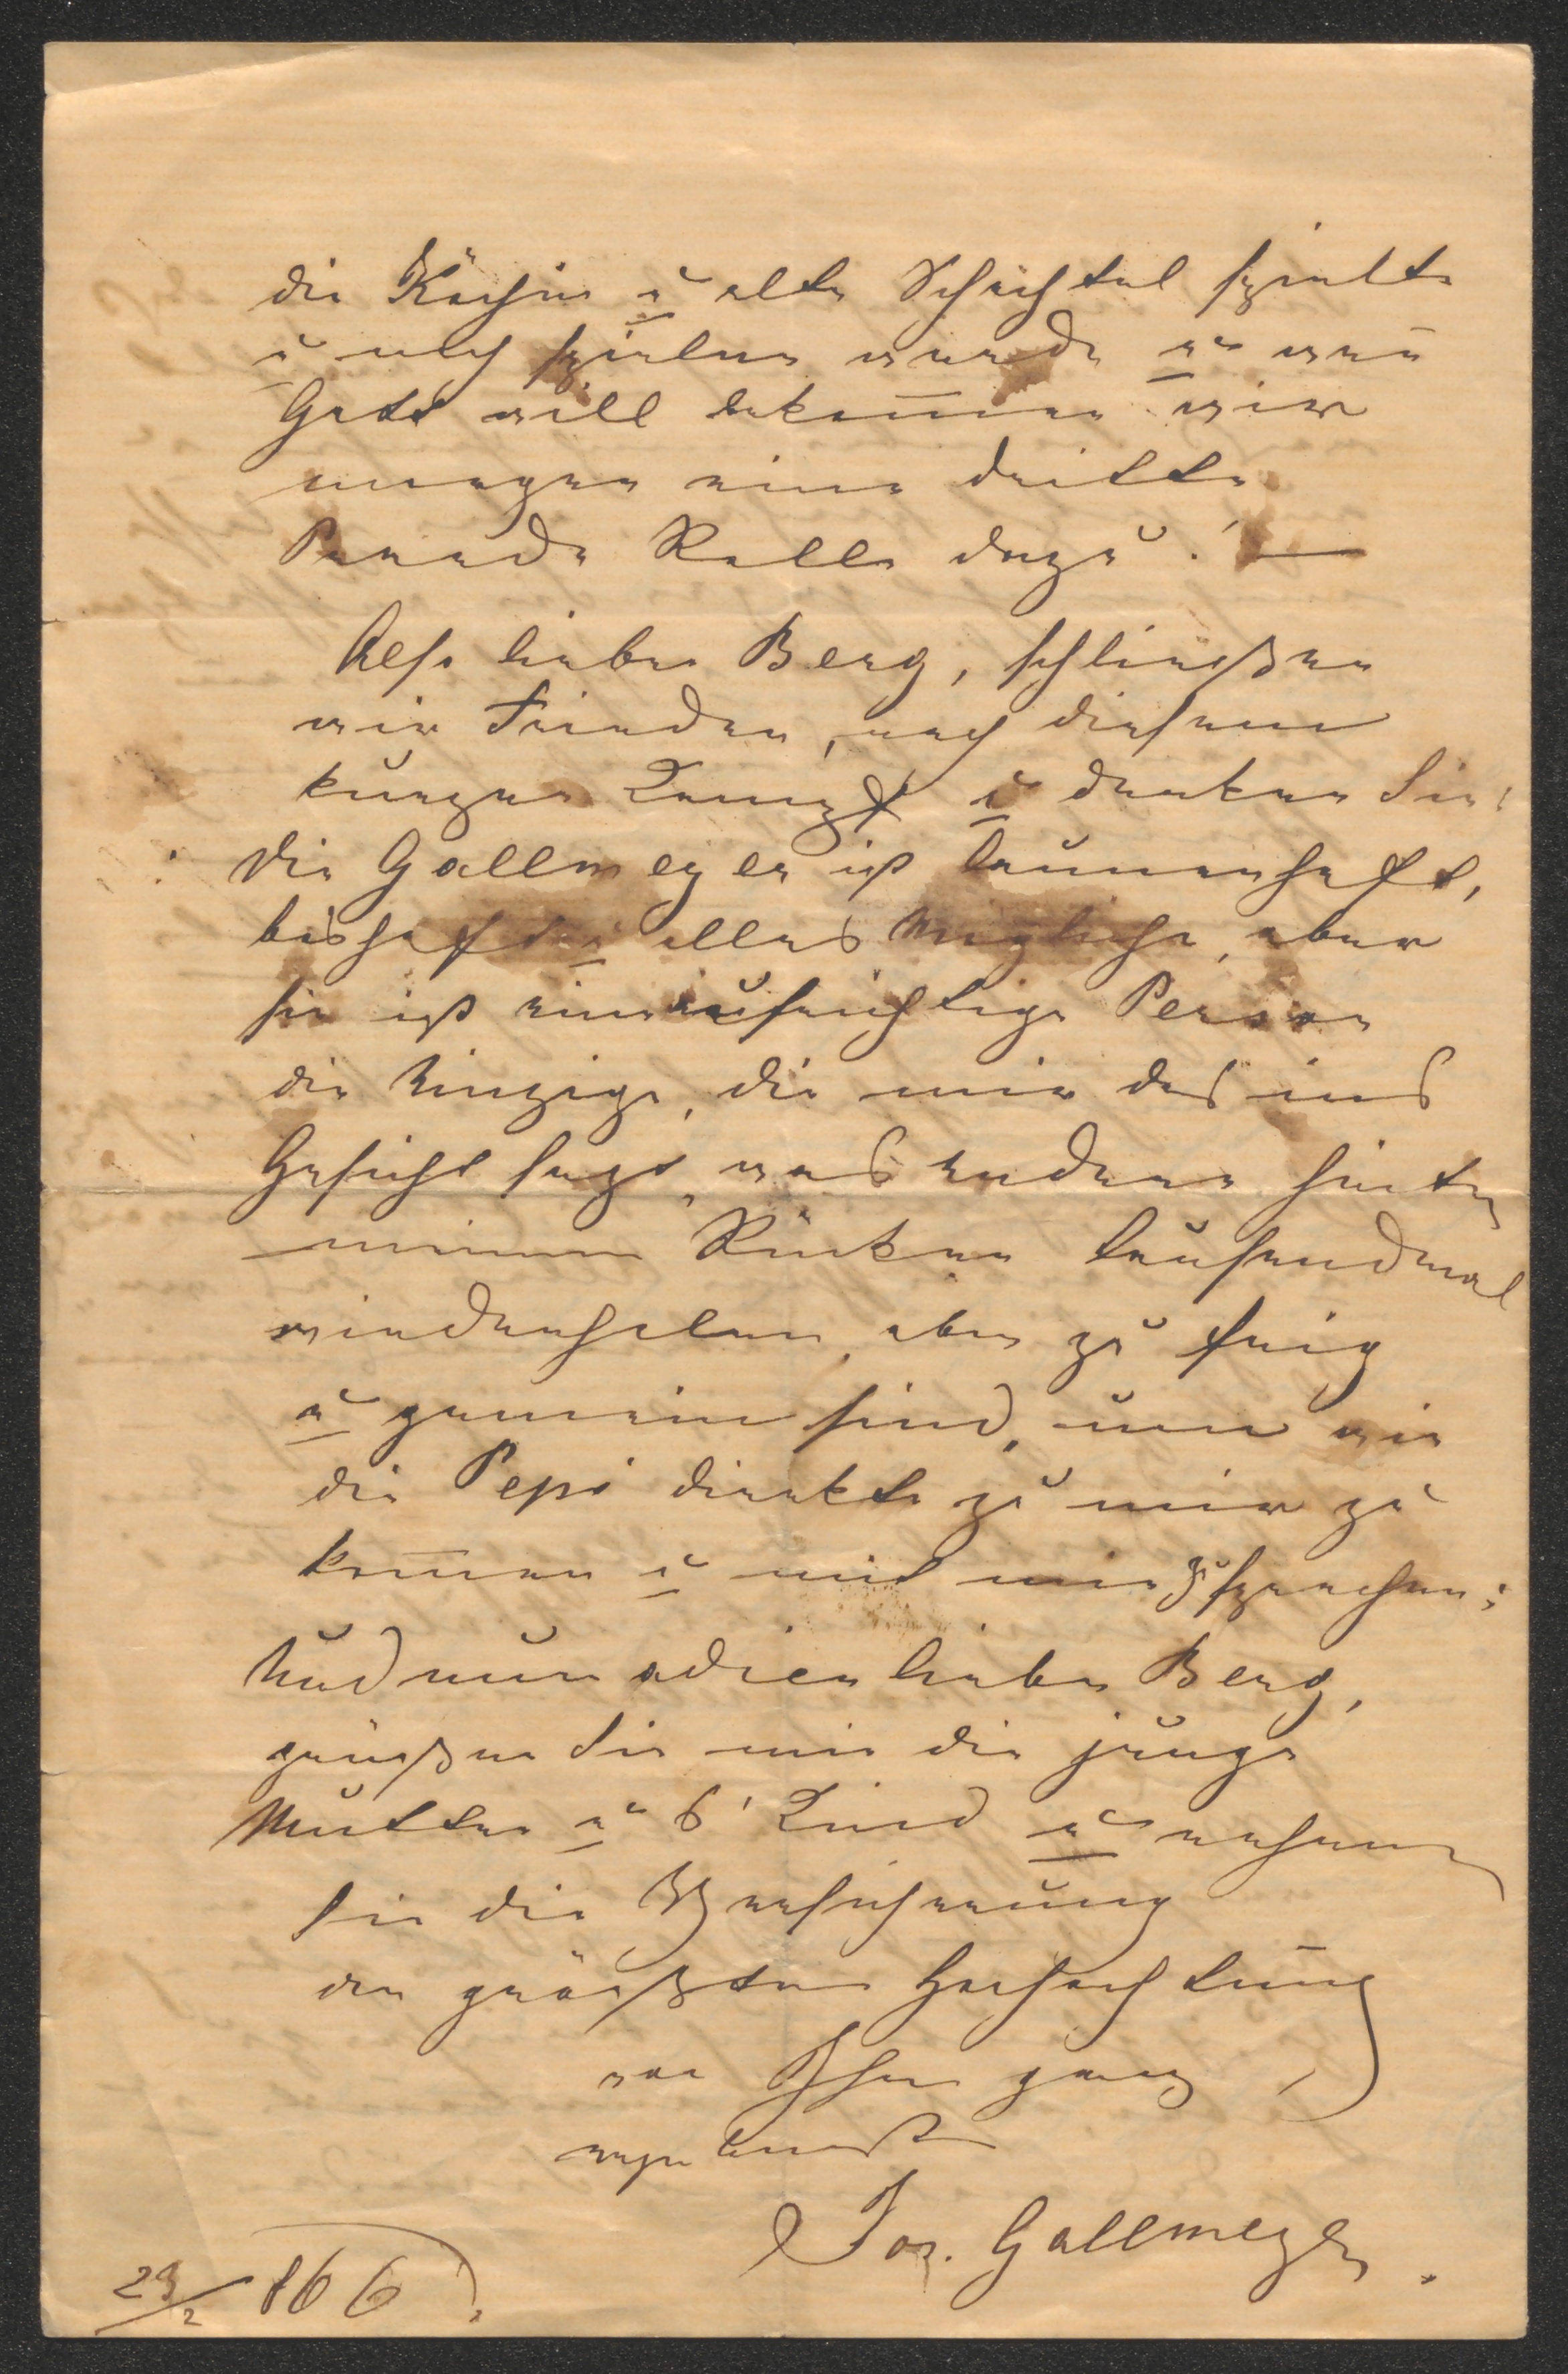 die Köchin u alte Schachtel spielte
u noch spielen werde u wen̄
Gott will bekom̄en wir
morgen eine dritte
Parade Rolle dazu! —
Also lieber Berg, schließen
wir Frieden, nach diesem
kurzen Kampf u denken Sie:
die Gallmeyer ist launenhaft,
boshaft u alles Mögliche, aber
sie ist eine aufrichtige Person
die Einzige, die mir das ins
Gesicht sagt, was andere hinter
meinem Rücken tausendmal
wiederholen, aber zu feig
u gemein sind, um wie
die Pepi direkte zu mir zu
kom̄en u mit mir zu sprechen;
Und nun adieu lieber Berg,
grüeßen Sie mir die junge
Mutter u s' Kind u nehmen
Sie die Versicherung
der größten Hochachtung
von Ihrer ganz
ergebenst
Jos. Gallmeyer.
23/2 866.